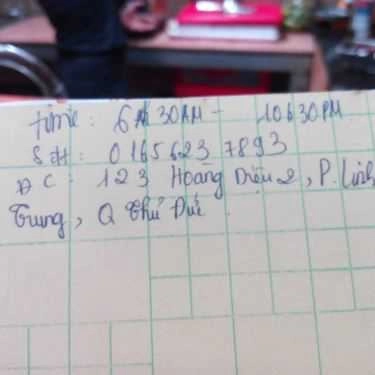 Time: 6h30AM - 10h30PM
Sđt: 0165623 7893
ĐC: 123 Hoàng Diệu 2, P. Linh
Trung, Q Thủ Đức.